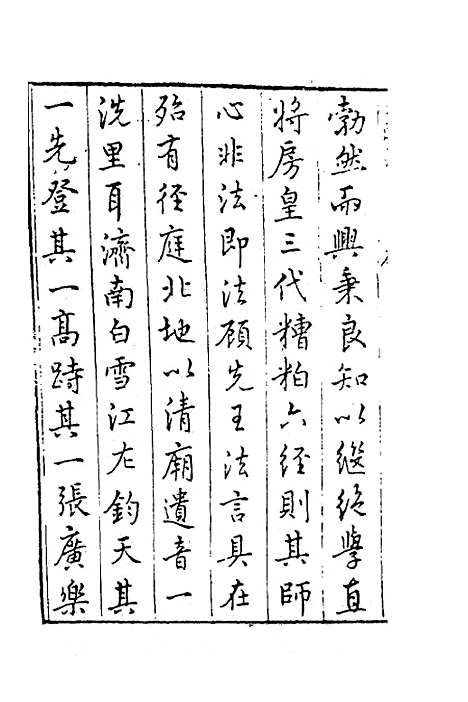 勃然而興秉良知以繼絕學直
將房皇三代糟粕六經則其師
心非法即法顧先王法言具在
殆有徑庭北地以清廟遺音一
洗里耳濟南白雪江左鈞天其
一先登其一高跱其一張廣樂